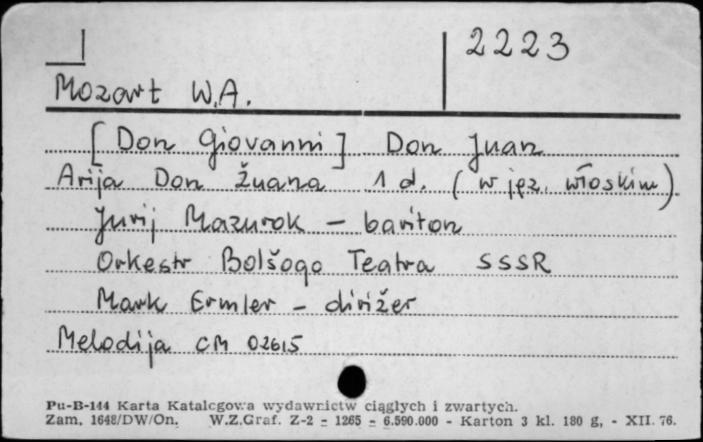 2223
Mozart W.A.
[Don Giovanni] Don Juan
Arija Don Žuana 1 d. (w jęz. włoskim)
Jurij Mazurok – bariton
Orkestr Bolšogo Teatra SSSR
Mark Ermler – dirižer
Melodija CM 02615
Pu-B-144 Karta Katalogowa wydawnictw ciągłych i zwartych.
Zam. 1648/DW/On. W.Z.Graf. Z-2 - 1265 - 6.590.000 - Karton 3 kl. 180 g, - XII. 76.